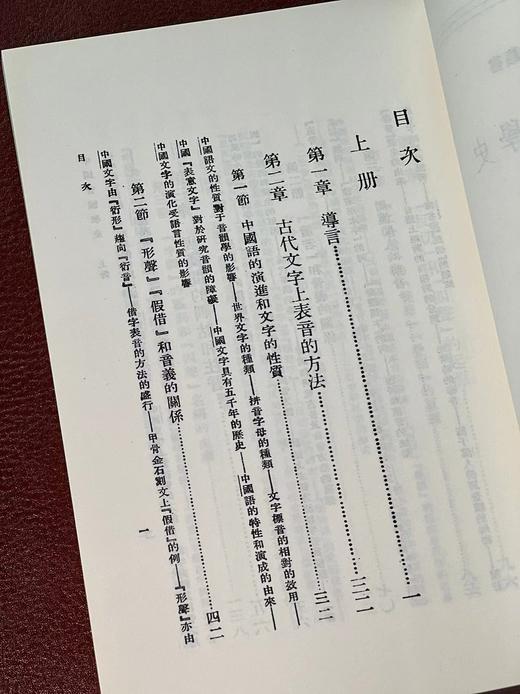 目次
上册
第一章 導言……一
第二章 古代文字上表音的方法……三二
第一節 中國語的演進和文字的性質……三二
中國語文的性質對于音韻學的影響——世界文字的種類——拼音字母的種類——文字標音的相對的效用——
中國『表意文字』對於研究音韻的障礙——中國文字具有五千年的歷史——中國語的特性和演成的由來——
中國文字的演化受語言性質的影響
第二節 『形聲』『假借』和音義的關係……四二
中國文字由『衍形』趨向『衍音』——借字表音的方法的盛行——甲骨金石劉文上『假借』的例——『形聲』亦由
目次 一